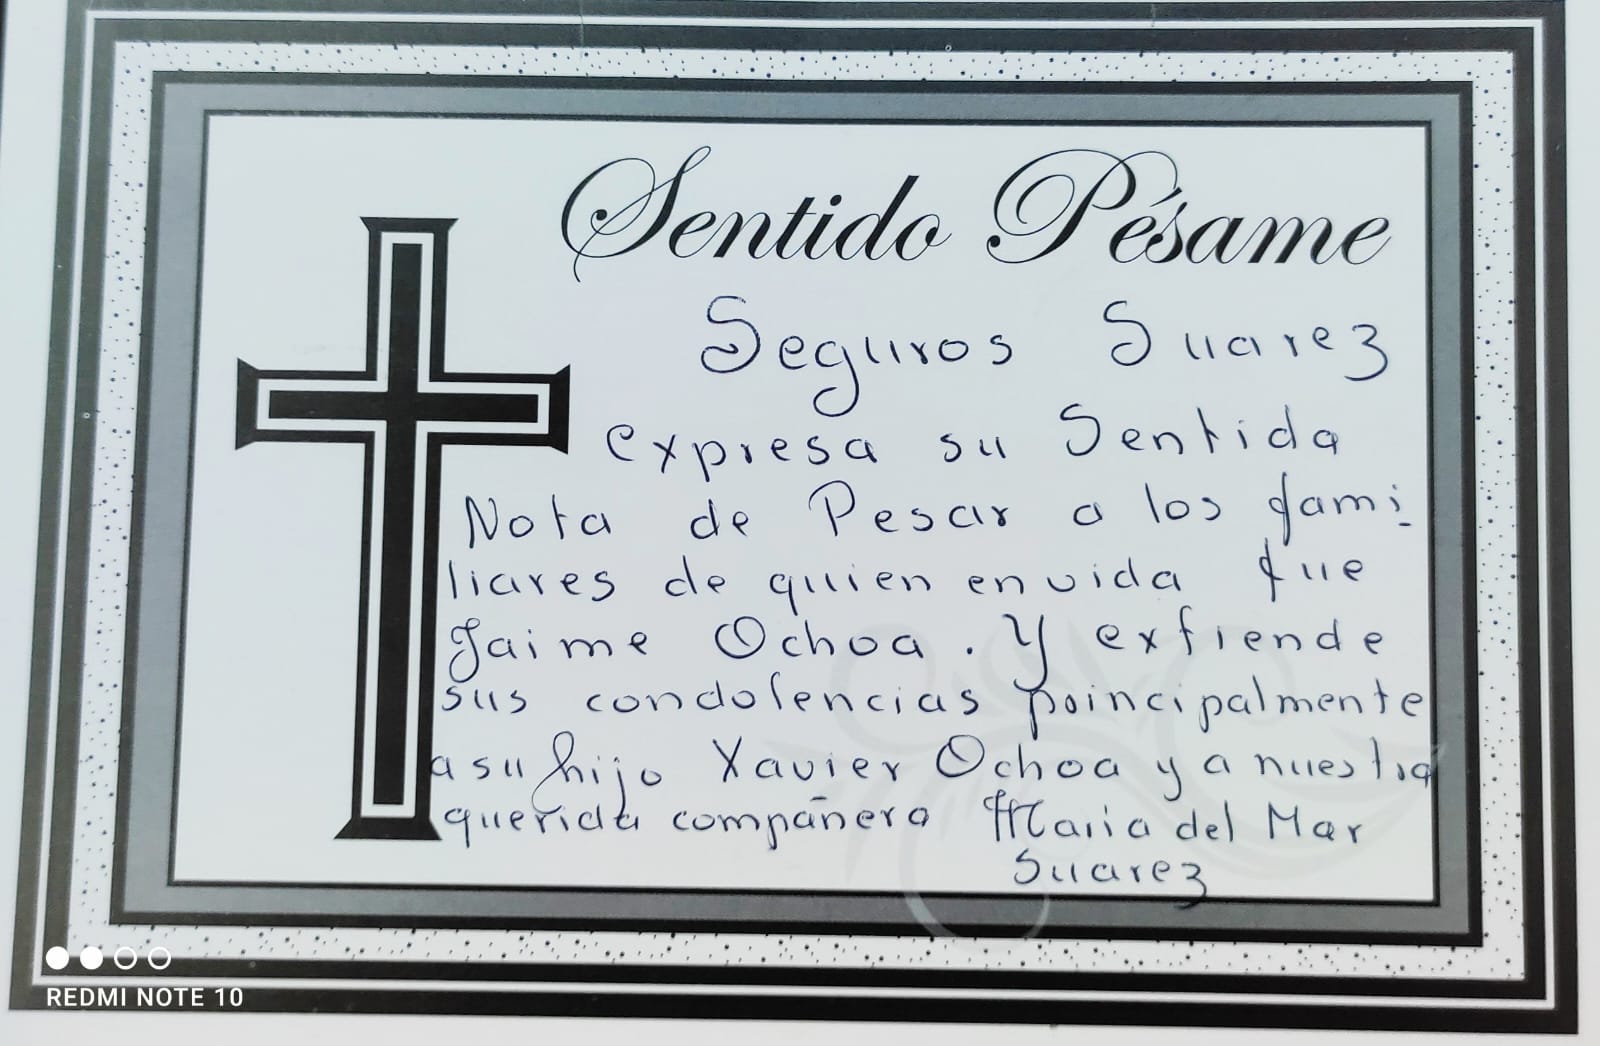 Sentido Pésame
Seguros Suarez
expresa su Sentida
Nota de Pesar a los fami_
liares de quien en vida fue
Jaime Ochoa. Y extiende
sus condolencias principalmente
a su hijo Xavier Ochoa y a nuestra
querida compañera Maria del Mar
Suarez
REDMI NOTE 10